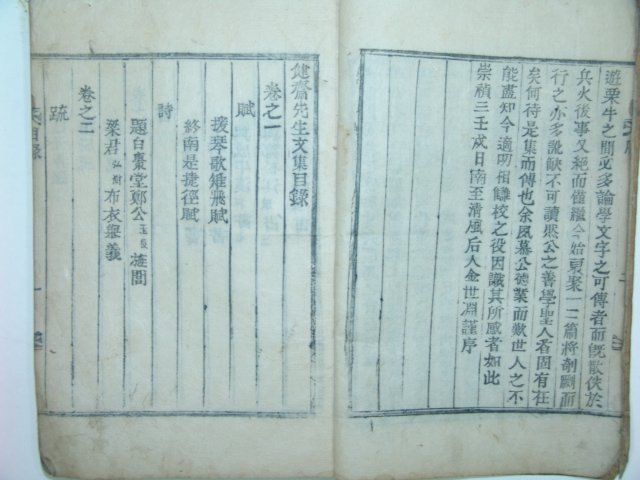 遊栗牛之間必多論學文字之可傳者而旣散佚於
兵火後事又絕而僅繼今始裒聚一二篇將剞劂而
行之亦多訛缺不可讀然公之善學聖人者固有在
矣何待是集而傳也余夙慕公德業而歎世人之不
能盡知今適明相讎校之役因識其所感者如此
崇禎三壬戌日南至淸風后人金世淵謹序
健齋先生文集目錄
卷之一
賦
援琴歌雉飛賦
終南是捷徑賦
詩
題白棗堂鄭公
旌閭
梁君弘澍布衣學義
卷之二
疏
目錄
一